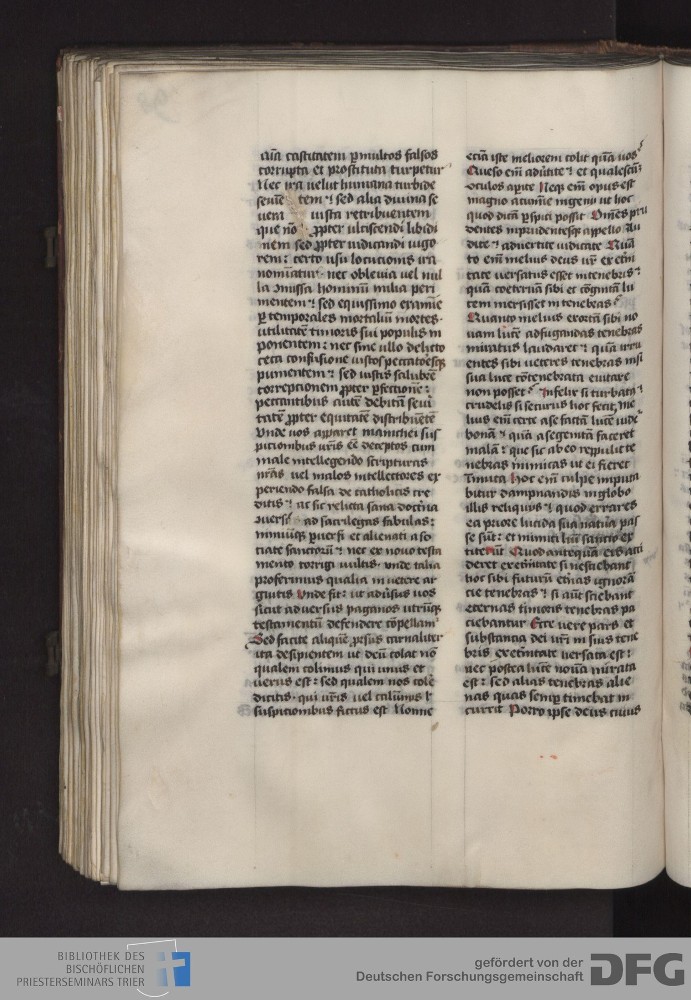 aīa castitatem p multos falsos
corrupta et prostituta turpetur
Nec ira uelut humana turbide
seuiē tem : sed alia diuina se
uera iusta retribuentem
que nō ꝓpter ulciscendi libidi
nem sed ꝓpter iudicandi uigo
rem : certo usu locucionis ira
nominatur . nec obleuia uel nul
la amissa hominum milia peri
mentem : sed equissimo examīe
p temporales mortaliū mortes .
utilitatē timoris sui populis in
ponentem : nec sine ullo delicto
ceca confusione iustos peccatoresqꝫ
punientem : sed iustis salubrē
correptionem ꝓpter ꝑfectionē :
peccantibus autē debitā seueri
tatē ꝓpter equitatē distribuētē
Vnde uos apparet manichei sus
picionibus uris eē deceptos cum
male intellegendo scripturas
nras uel malos intellectores ex
periendo falsa de catholicis cre
ditis : ac sic relicta sana doctrina
ad sacrilegas fabulas :
nimiumqꝫ ꝑuersi et alienati a so
cietate sanctorū : nec ex nouo testa
mento corrigi uultis . unde talia
proferimus qualia in uetere ar
guitis Vnde fit : ut aduersus uos
sicut aduersus paganos utrūqꝫ
testamentū defendere cōpellam
Sed facite aliquē prorsus carnaliter
ita desipientem ut deū colat nō
qualem colimus qui unus et
uerus est : sed qualem nos colē
dicitis . qui uris uel calūpniis l
suspicionibus fictus est Nonne
eciā iste meliorem colit quā uos
Queso em aduertite : et qualescūqꝫ
oculos aperite Neqꝫ em opus est
magno acumīe ingenii ut hoc
quod dicā perspici possit Omnes pru
dentes inprudentesqꝫ appello Au
dite : aduertite iudicate Quā
to em melius deus ur ex eter
nitate uersatus esset in tenebris :
quā coeternā sibi et cognitā lu
cem mersisset in tenebras
Quanto melius exortā sibi no
uam lucē ad fugandas tenebras
miratus laudaret : quā irru
entes sibi ueteres tenebras nisi
sua luce cōtenebrata euitare
non posset : Infelix si turbatus
crudelis si securus hoc fecit Me
lius em certe a se factā lucē uideret
bonā : quā a se genitā faceret
malā : que sic ab eo reppulit te
nebras inimicas ut ei fieret
inimica Hoc em culpe imputa
bitur dampnandis in globo
illis reliquiis : quod errare
ea priore lucida sua natura pas
se sunt : et inimici lumini sancto ex
titerūt Quod antequā eis acci
deret ex eternitate si nesciebant
hoc sibi futurū eternas ignorā
cie tenebras : si aut sciebant
eternas timoris tenebras pa
ciebantur Ecce uere pars et
substancia dei uri in suis tene
bris ex eternitate uersata est :
nec postea lucē nouā mirata
est : sed alias tenebras alie
nas quas semp timebat in
currit Porro ipse deus cuius
BIBLIOTHEK DES
BISCHÖFLICHEN
PRIESTERSEMINARS TRIER
gefördert von der
Deutschen Forschungsgemeinschaft
DFG